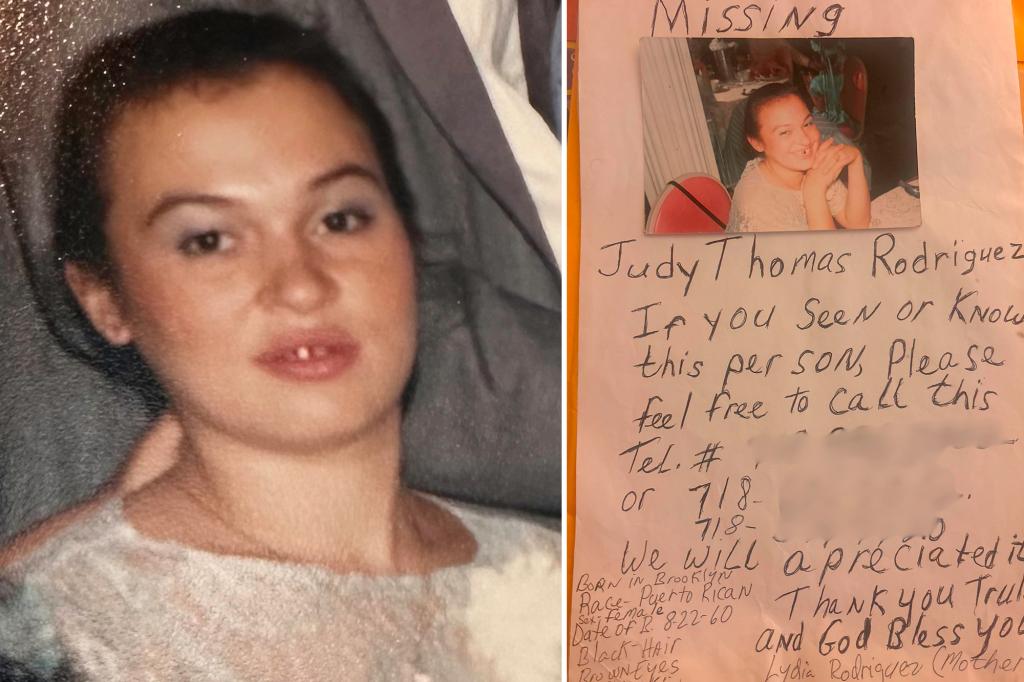 Missing
Judy Thomas Rodriguez
If you seen or Know
this person, Please
feel free to call this
Tel. #
or 718-
718-
We will apréciated it
Thank you Truly
and God Bless you
Born in Brooklyn
Race- Puerto Rican
Sex: female
Date of B. 8-22-60
Black-Hair
Brown-Eyes
Lydia Rodriguez (Mother